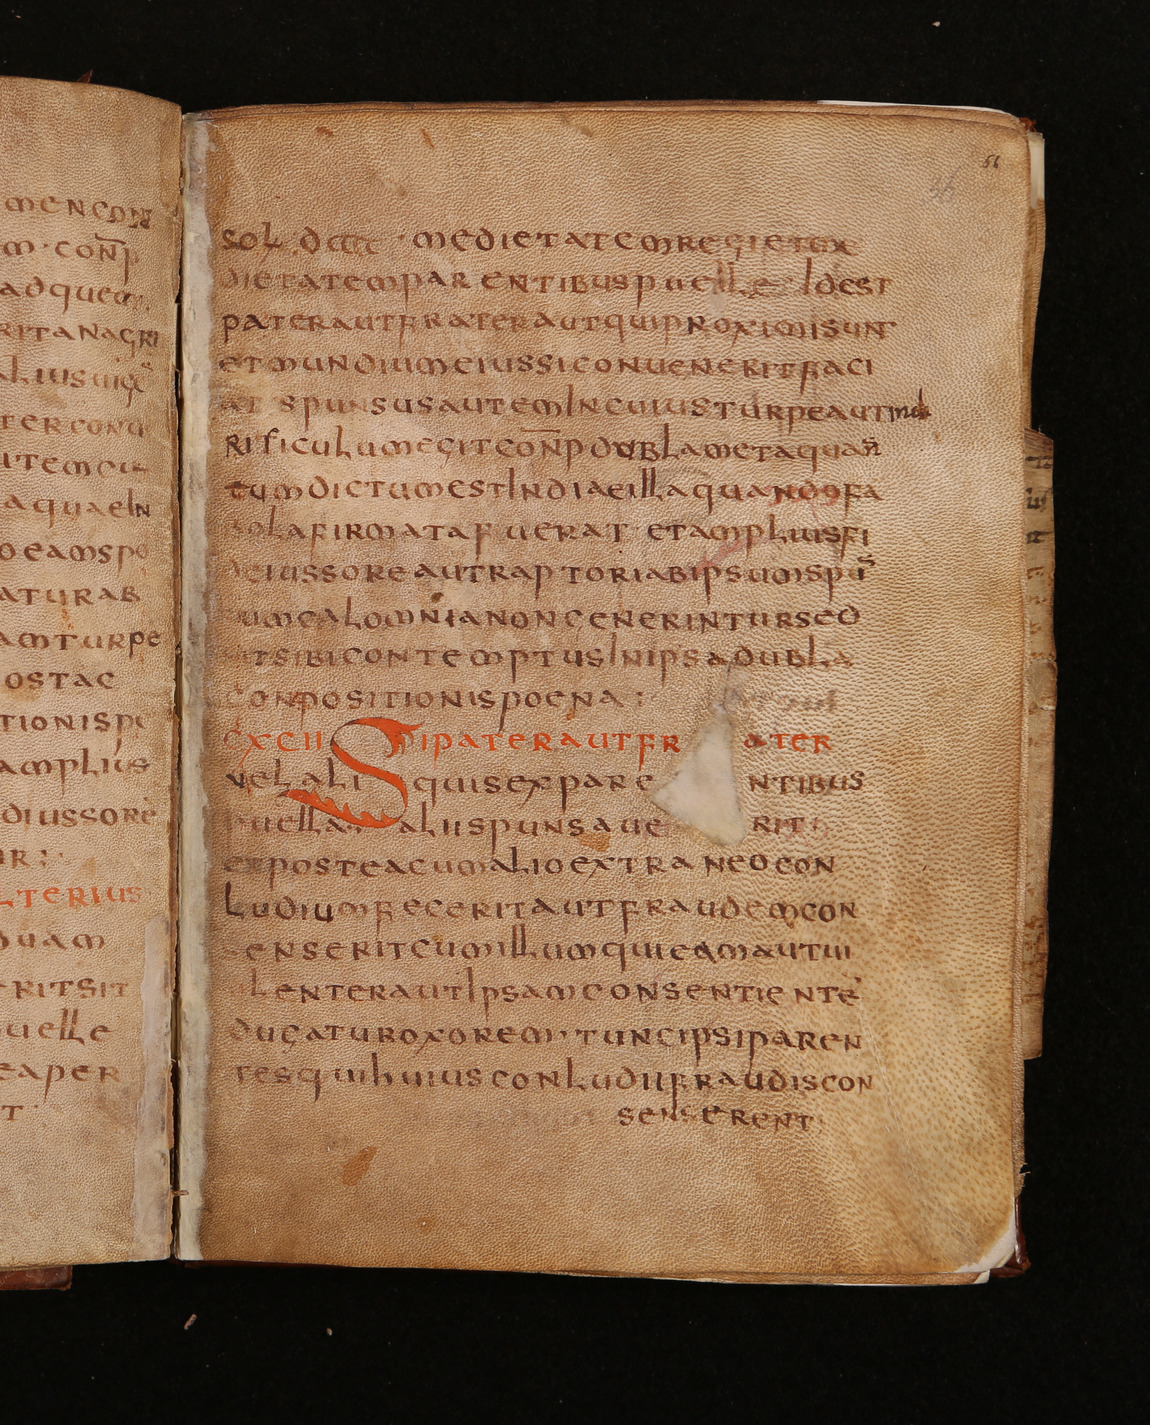 MENCONP
M · CON̄P
ADQUEM
RITANAGRI
ALIUSUIRG̅
TERCONU
ITEMCU
AQUAEIN
OEAMSPO
ATURAB
AMTURPE
OSTAC
TIONISPO
AMPLIUS
DIUSSORE
UR : ·
LTERIUS
QUAM
RITSIT
UELLE
EAPER
T ·
56
SOL · DCCCC · MEDIETATEMREGIETME
DIETATEMPARENTIBUSPUELLE · IDEST
PATERAUTFRATERAUTQUIPROXIMISUNT
ETMUNDIUMEIUSSICONUENERITFACI
AT SPUNSUSAUTEMINCUIUSTURPEAUTINDE
RIFICULUMEGITCON̄PDUBLAMETAQUAN̄
TUMDICTUMESTINDIAEILLAQUANDOFA
BOLAFIRMATAFUERAT · ETAMPLIUSFI
DEIUSSOREAUTRAPTORIABIPSUMSPŪ
SUMCALOMNIANONGENERINTURSED
SITSIBICONTEMPTUSINIPSADUBLA
CONPOSITIONISPOENA :
CXCII SIPATERAUTFRATER
VELALIQUISEXPARENTIBUS
PUELLAM ALIISPUNSAUERIT :
ETPOSTEACUMALIOEXTRANEOCON
LUDIUMFECERITAUTFRAUDEMCON
SENSERITCUMILLUMQUIEAMAUTUI
OLENTERAUTIPSAMCONSENTIENTE
DUCATUROXOREM · TUNCIPSIPAREN
TESQUIHUIUSCONLUDIIFRAUDISCON
SENSERENT ·